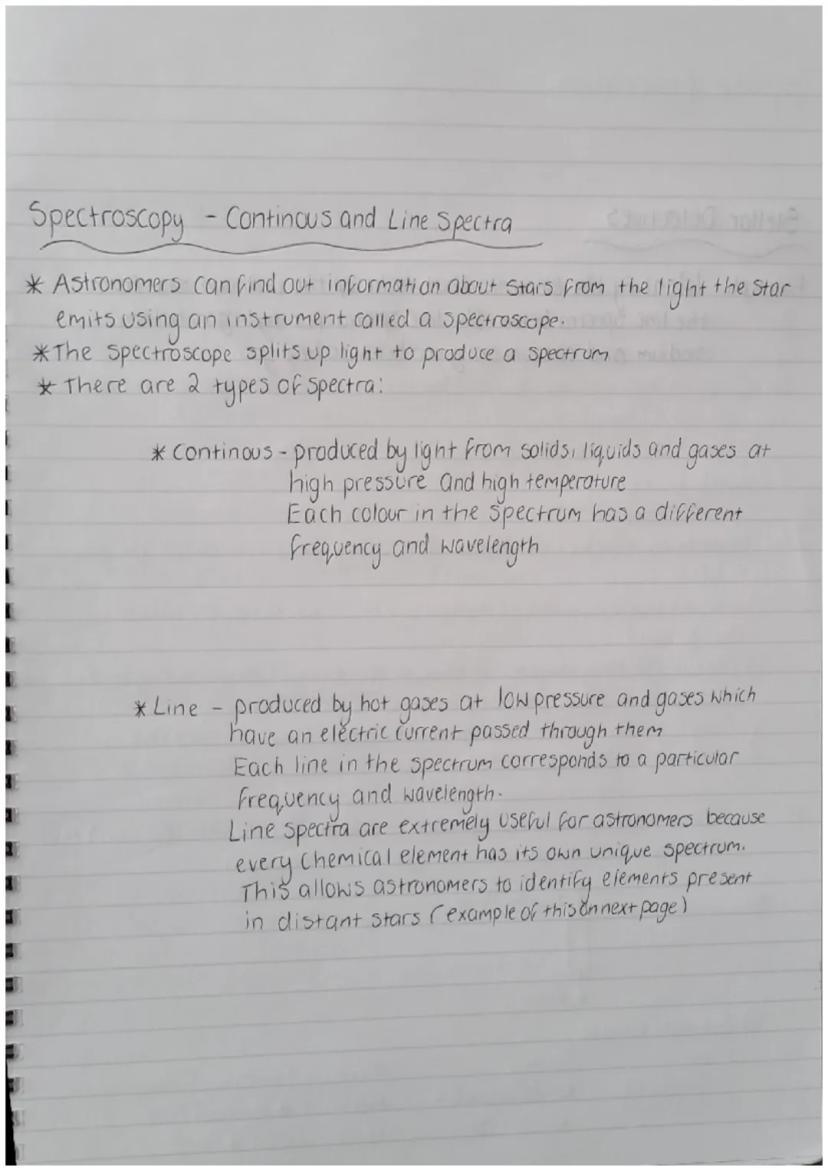 Spectroscopy - Continous and Line Spectra
* Astronomers can find out information about stars from the light the star
emits using an instrument called a spectroscope.
* The spectroscope splits up light to produce a spectrum
* There are 2 types of spectra:
* Continous - produced by light from solids, liquids and gases at
high pressure and high temperature
Each colour in the spectrum has a different
frequency and wavelength
* Line - produced by hot gases at low pressure and gases which
have an electric current passed through them
Each line in the spectrum corresponds to a particular
frequency and wavelength.
Line spectra are extremely useful for astronomers because
every chemical element has its own unique spectrum.
This allows astronomers to identify elements present
in distant stars (example of this on next page)